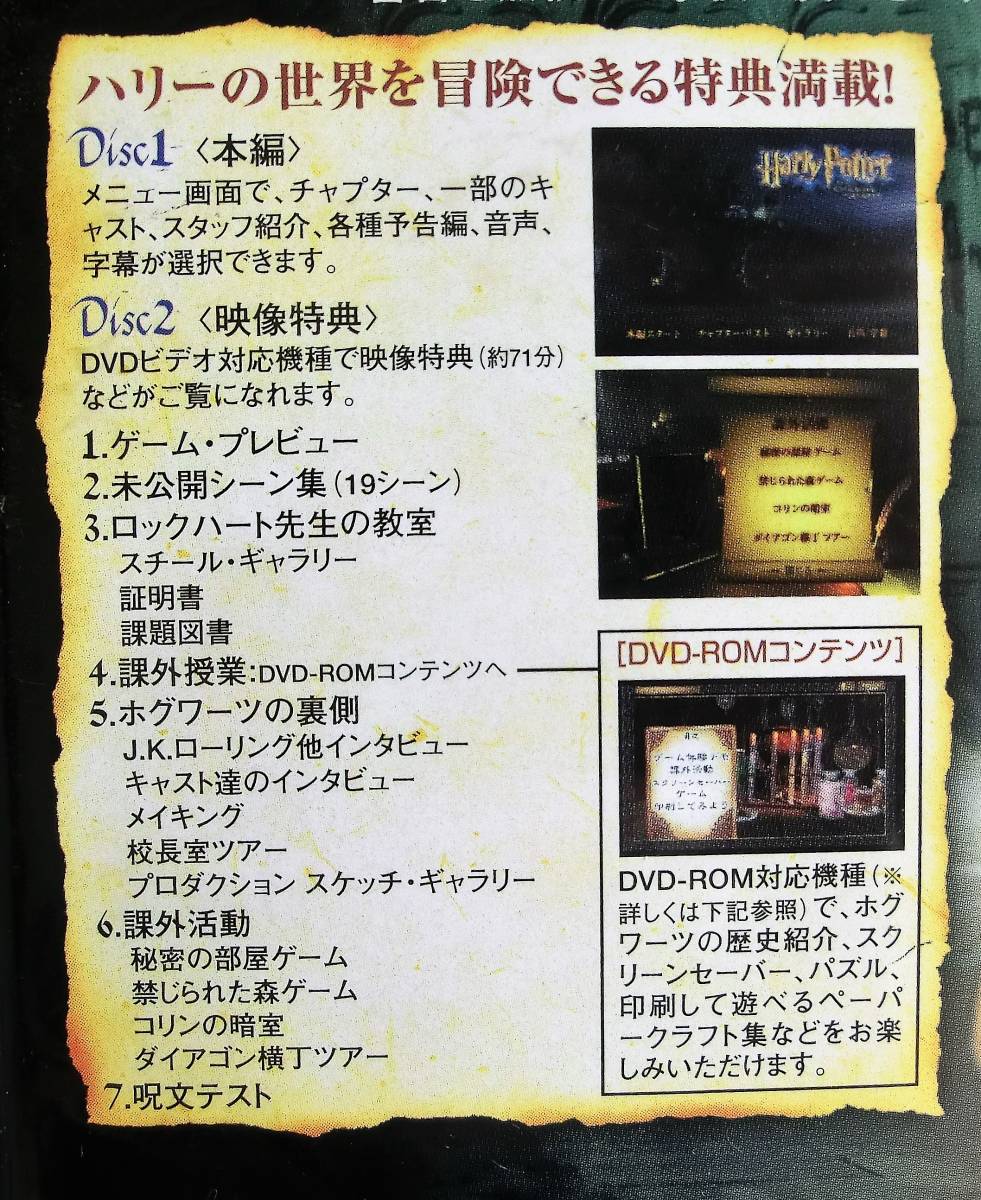 ハリーの世界を冒険できる特典満載!
Disc1 〈本編〉
メニュー画面で、チャプター、一部のキ
ャスト、スタッフ紹介、各種予告編、音声、
字幕が選択できます。
Disc2 〈映像特典〉
DVDビデオ対応機種で映像特典(約71分)
などがご覧になれます。
1.ゲーム・プレビュー
2.未公開シーン集(19シーン)
3.ロックハート先生の教室
スチール・ギャラリー
証明書
課題図書
4.課外授業:DVD-ROMコンテンツへ
5.ホグワーツの裏側
J.K.ローリング他インタビュー
キャスト達のインタビュー
メイキング
校長室ツアー
プロダクション スケッチ・ギャラリー
6.課外活動
秘密の部屋ゲーム
禁じられた森ゲーム
コリンの暗室
ダイアゴン横丁ツアー
7.呪文テスト
Harry Potter
本編スタート チャプター・リスト ギャラリー 音声/字幕
課外活動
秘密の部屋ゲーム
禁じられた森ゲーム
コリンの暗室
ダイアゴン横丁ツアー
[DVD-ROMコンテンツ]
目次
ゲーム体験デモ
課外活動
スクリーンセーバー
ゲーム
印刷してみよう
DVD-ROM対応機種(※
詳しくは下記参照)で、ホグ
ワーツの歴史紹介、スク
リーンセーバー、パズル、
印刷して遊べるペーパ
ークラフト集などをお楽
しみいただけます。